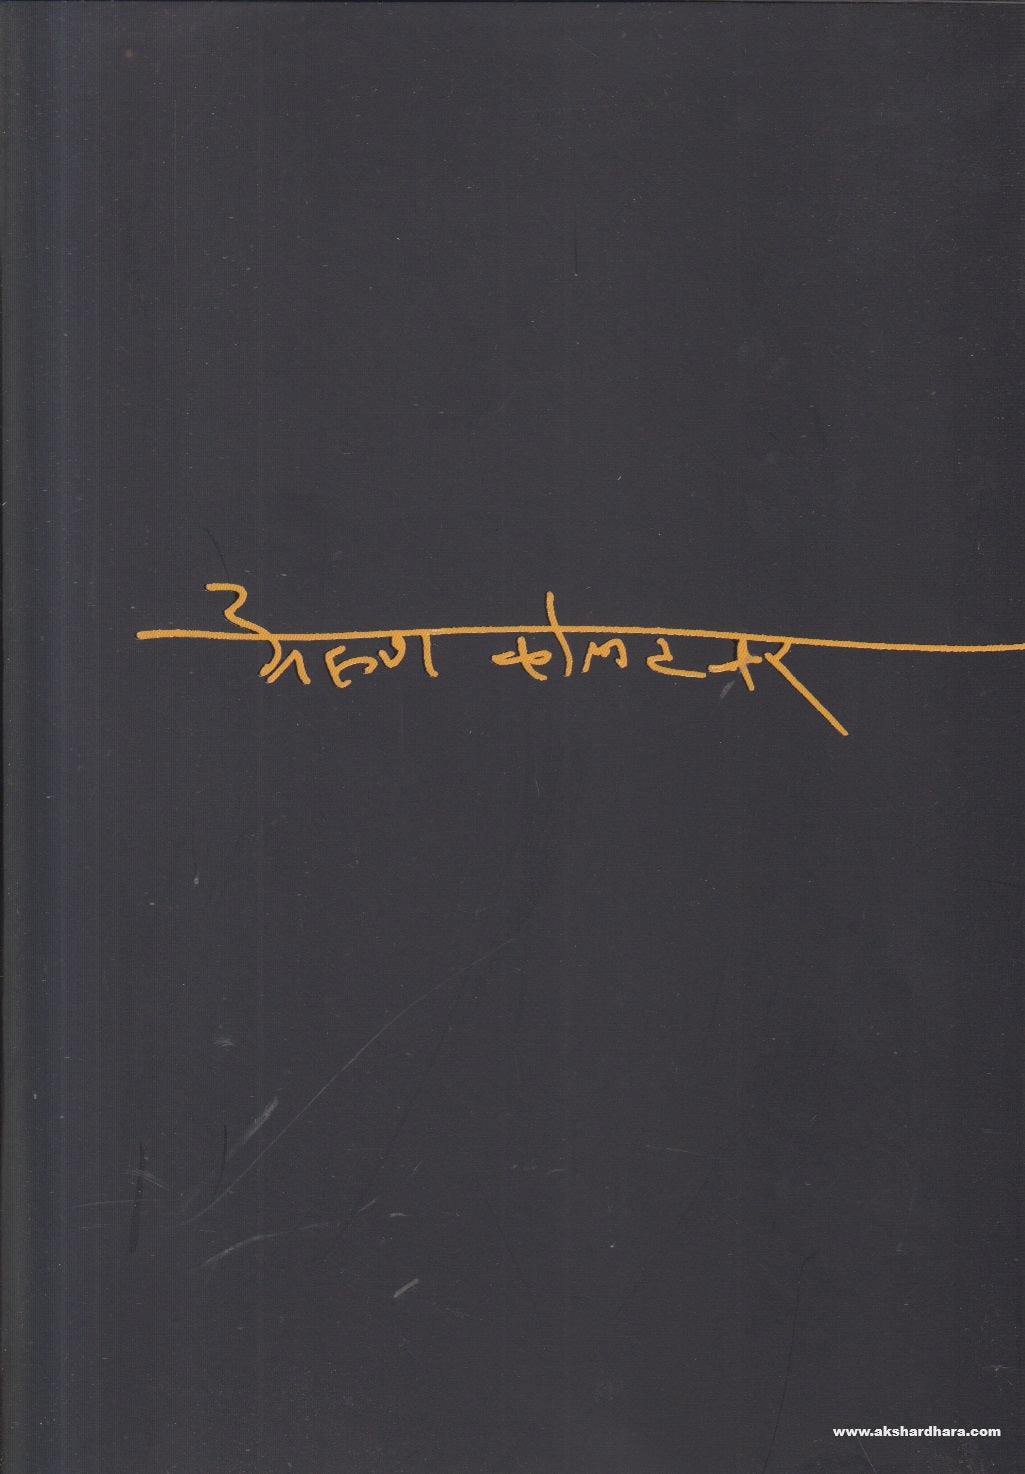 अरुण कोलटकर
www.akshardhara.com